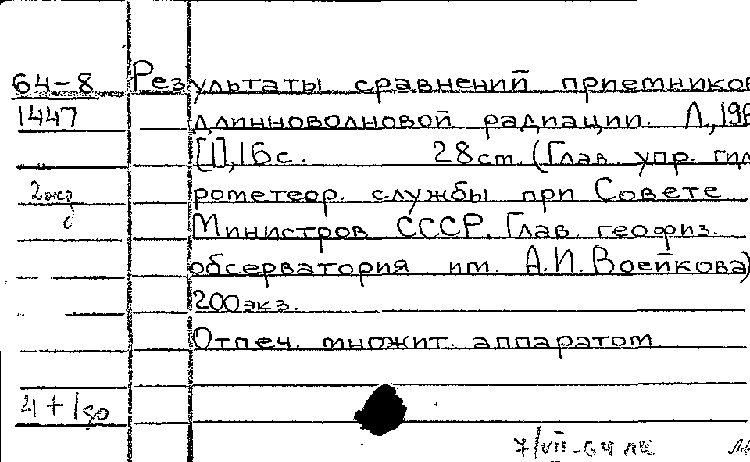 64-8 Результаты сравнений приемников
1447 длинноволновой радиации. Л., 196
[1], 16 с. 28 см. (Глав. упр. гид
2 экз рометеор. службы при Совете
Министров СССР. Глав. геофиз.
обсерватория им. А.И. Воейкова)
200 экз.
Отпеч. множит. аппаратом
4 + 1
7/VII-64